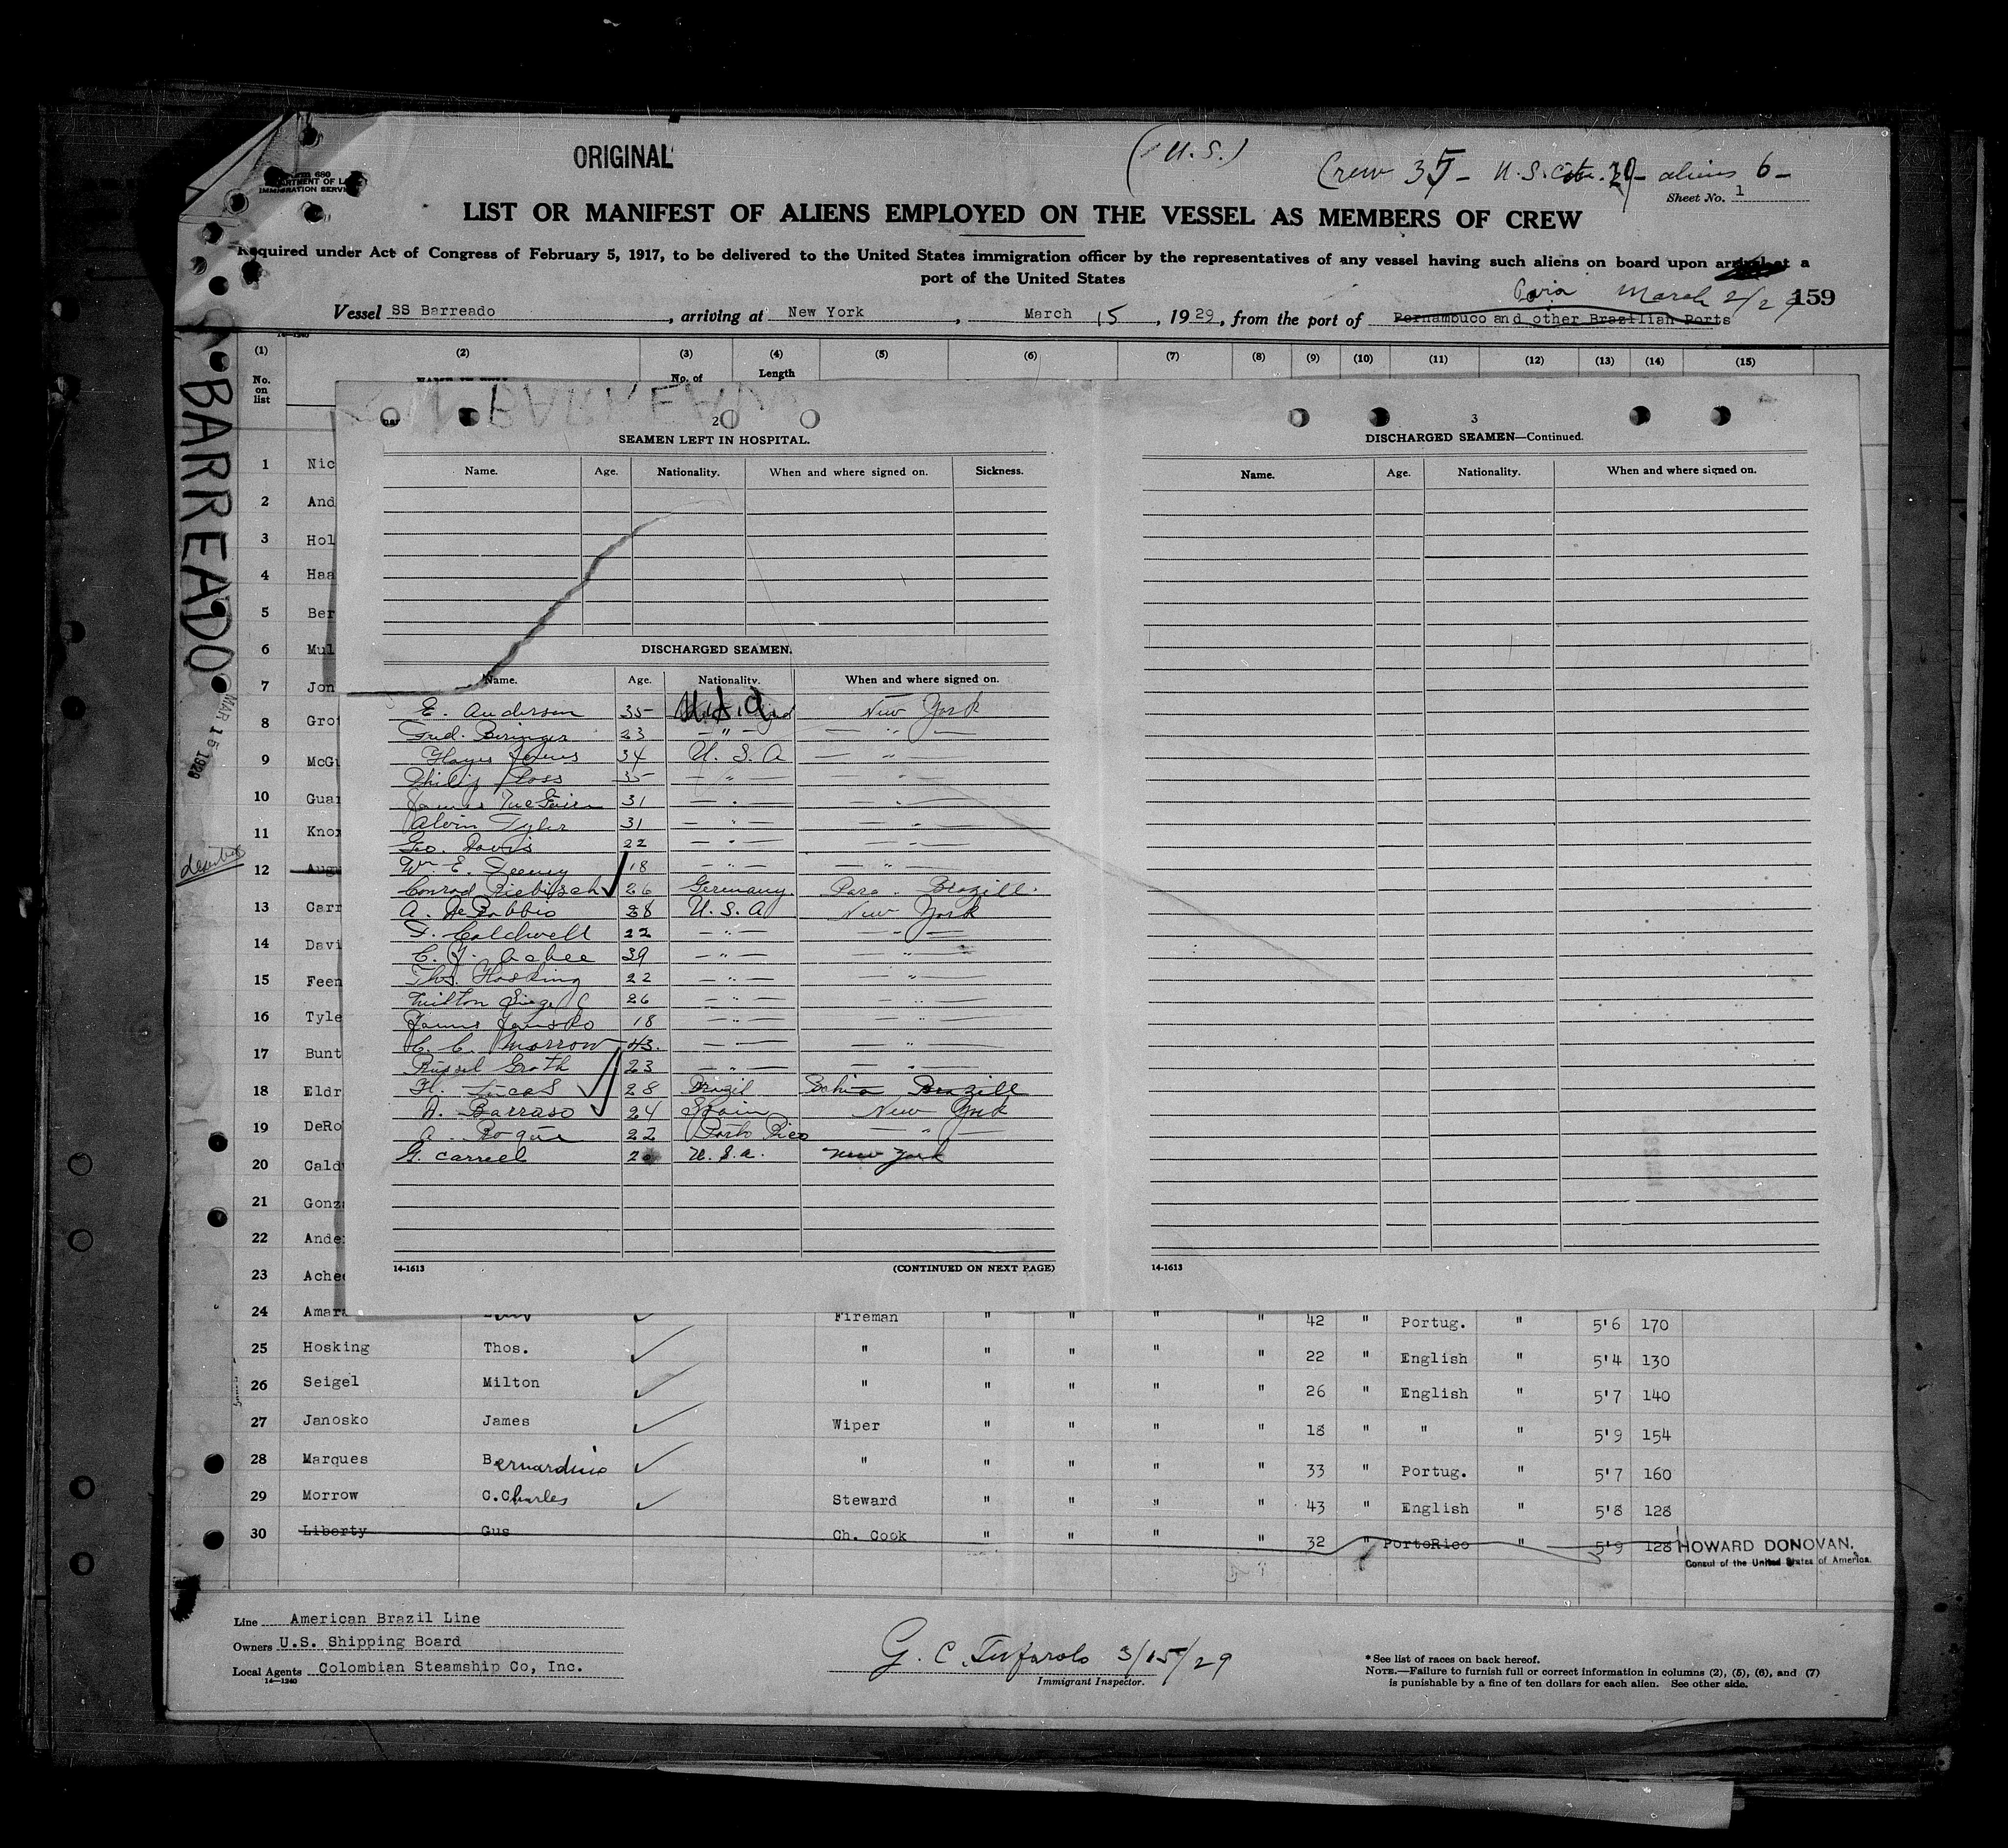 ORIGINAL
(U.S.)
Crew 35- U.S. Cit. 29- aliens 6-
Form 680
IMMIGRATION SERVICE
Sheet No. 1
LIST OR MANIFEST OF ALIENS EMPLOYED ON THE VESSEL AS MEMBERS OF CREW
Required under Act of Congress of February 5, 1917, to be delivered to the United States immigration officer by the representatives of any vessel having such aliens on board upon arrival at a
port of the United States
Para March 2/29 159
Vessel SS Barreado, arriving at New York, March 15, 1929, from the port of Pernambuco and other Brazilian Ports
14-1240
(1) (2) (3) (4) (5) (6) (7) (8) (9) (10) (11) (12) (13) (14) (15)
No. on list
No. of
Length
BARREADO
MAR 15 1929
2
SEAMEN LEFT IN HOSPITAL.
Name. Age. Nationality. When and where signed on. Sickness.
DISCHARGED SEAMEN.
Name. Age. Nationality. When and where signed on.
E. Anderson 35 U.S.A. New York
Fred. Beringer 23 — " — — " —
Hayes Jones 34 U. S. A — " —
Philip Ross 35 — " — "
James McGuire 31 — " — "
Alvin Tyler 31 — " — "
Geo. Davis 22 — " — "
Wm E. Feeney 18 — " — — " —
Conrad 26 Germany. Para. Brazill.
A. DeRobbio 38 U.S.A New York
F. Caldwell 22 — " — — " —
C. J. Achee 39 — " — — " —
Thos. Hosking 22 — " — "
Milton Siegel 26 — " — — " —
James Janosko 18 — " — — " —
C. C. Morrow 43. — " — "
Russel Groth 23 — " — — " —
H. Lucas 28 Brazil Bahia Brazill
A. Barraso 24 Spain New York
A. Roque 22 Porto Rico — " —
G. Carreel U.S.A. New York
14-1613 (CONTINUED ON NEXT PAGE)
3
DISCHARGED SEAMEN—Continued.
Name. Age. Nationality. When and where signed on.
14-1613
1 Nic
2 And
3 Hol
4 Haa
5 Ber
6 Mul
7 Jon
8 Grot
9 McGu
10 Guar
11 Knox
deserted
12 Aug
13 Carr
14 Davi
15 Feen
16 Tyle
17 Bunt
18 Eldr
19 DeRo
20 Cald
21 Gonz
22 Ande
23 Ache
24 Amara Fireman " " " " 42 " Portug. " 5'6 170
25 Hosking Thos. " " " " " 22 " English " 5'4 130
26 Seigel Milton " " " " " 26 " English " 5'7 140
27 Janosko James Wiper " " " " 18 " " " 5'9 154
28 Marques Bernardino " " " " " 33 " Portug. " 5'7 160
29 Morrow C. Charles Steward " " " " 43 " English " 5'8 128
30 Liberty Gus Ch. Cook " " " " 32 " PortoRico " 5'9 128
HOWARD DONOVAN.
Consul of the United States of America.
Line American Brazil Line
Owners U.S. Shipping Board
Local Agents Colombian Steamship Co, Inc.
14—1240
G. C. Tufarolo 3/15/29
Immigrant Inspector.
*See list of races on back hereof.
NOTE.—Failure to furnish full or correct information in columns (2), (5), (6), and (7)
is punishable by a fine of ten dollars for each alien. See other side.